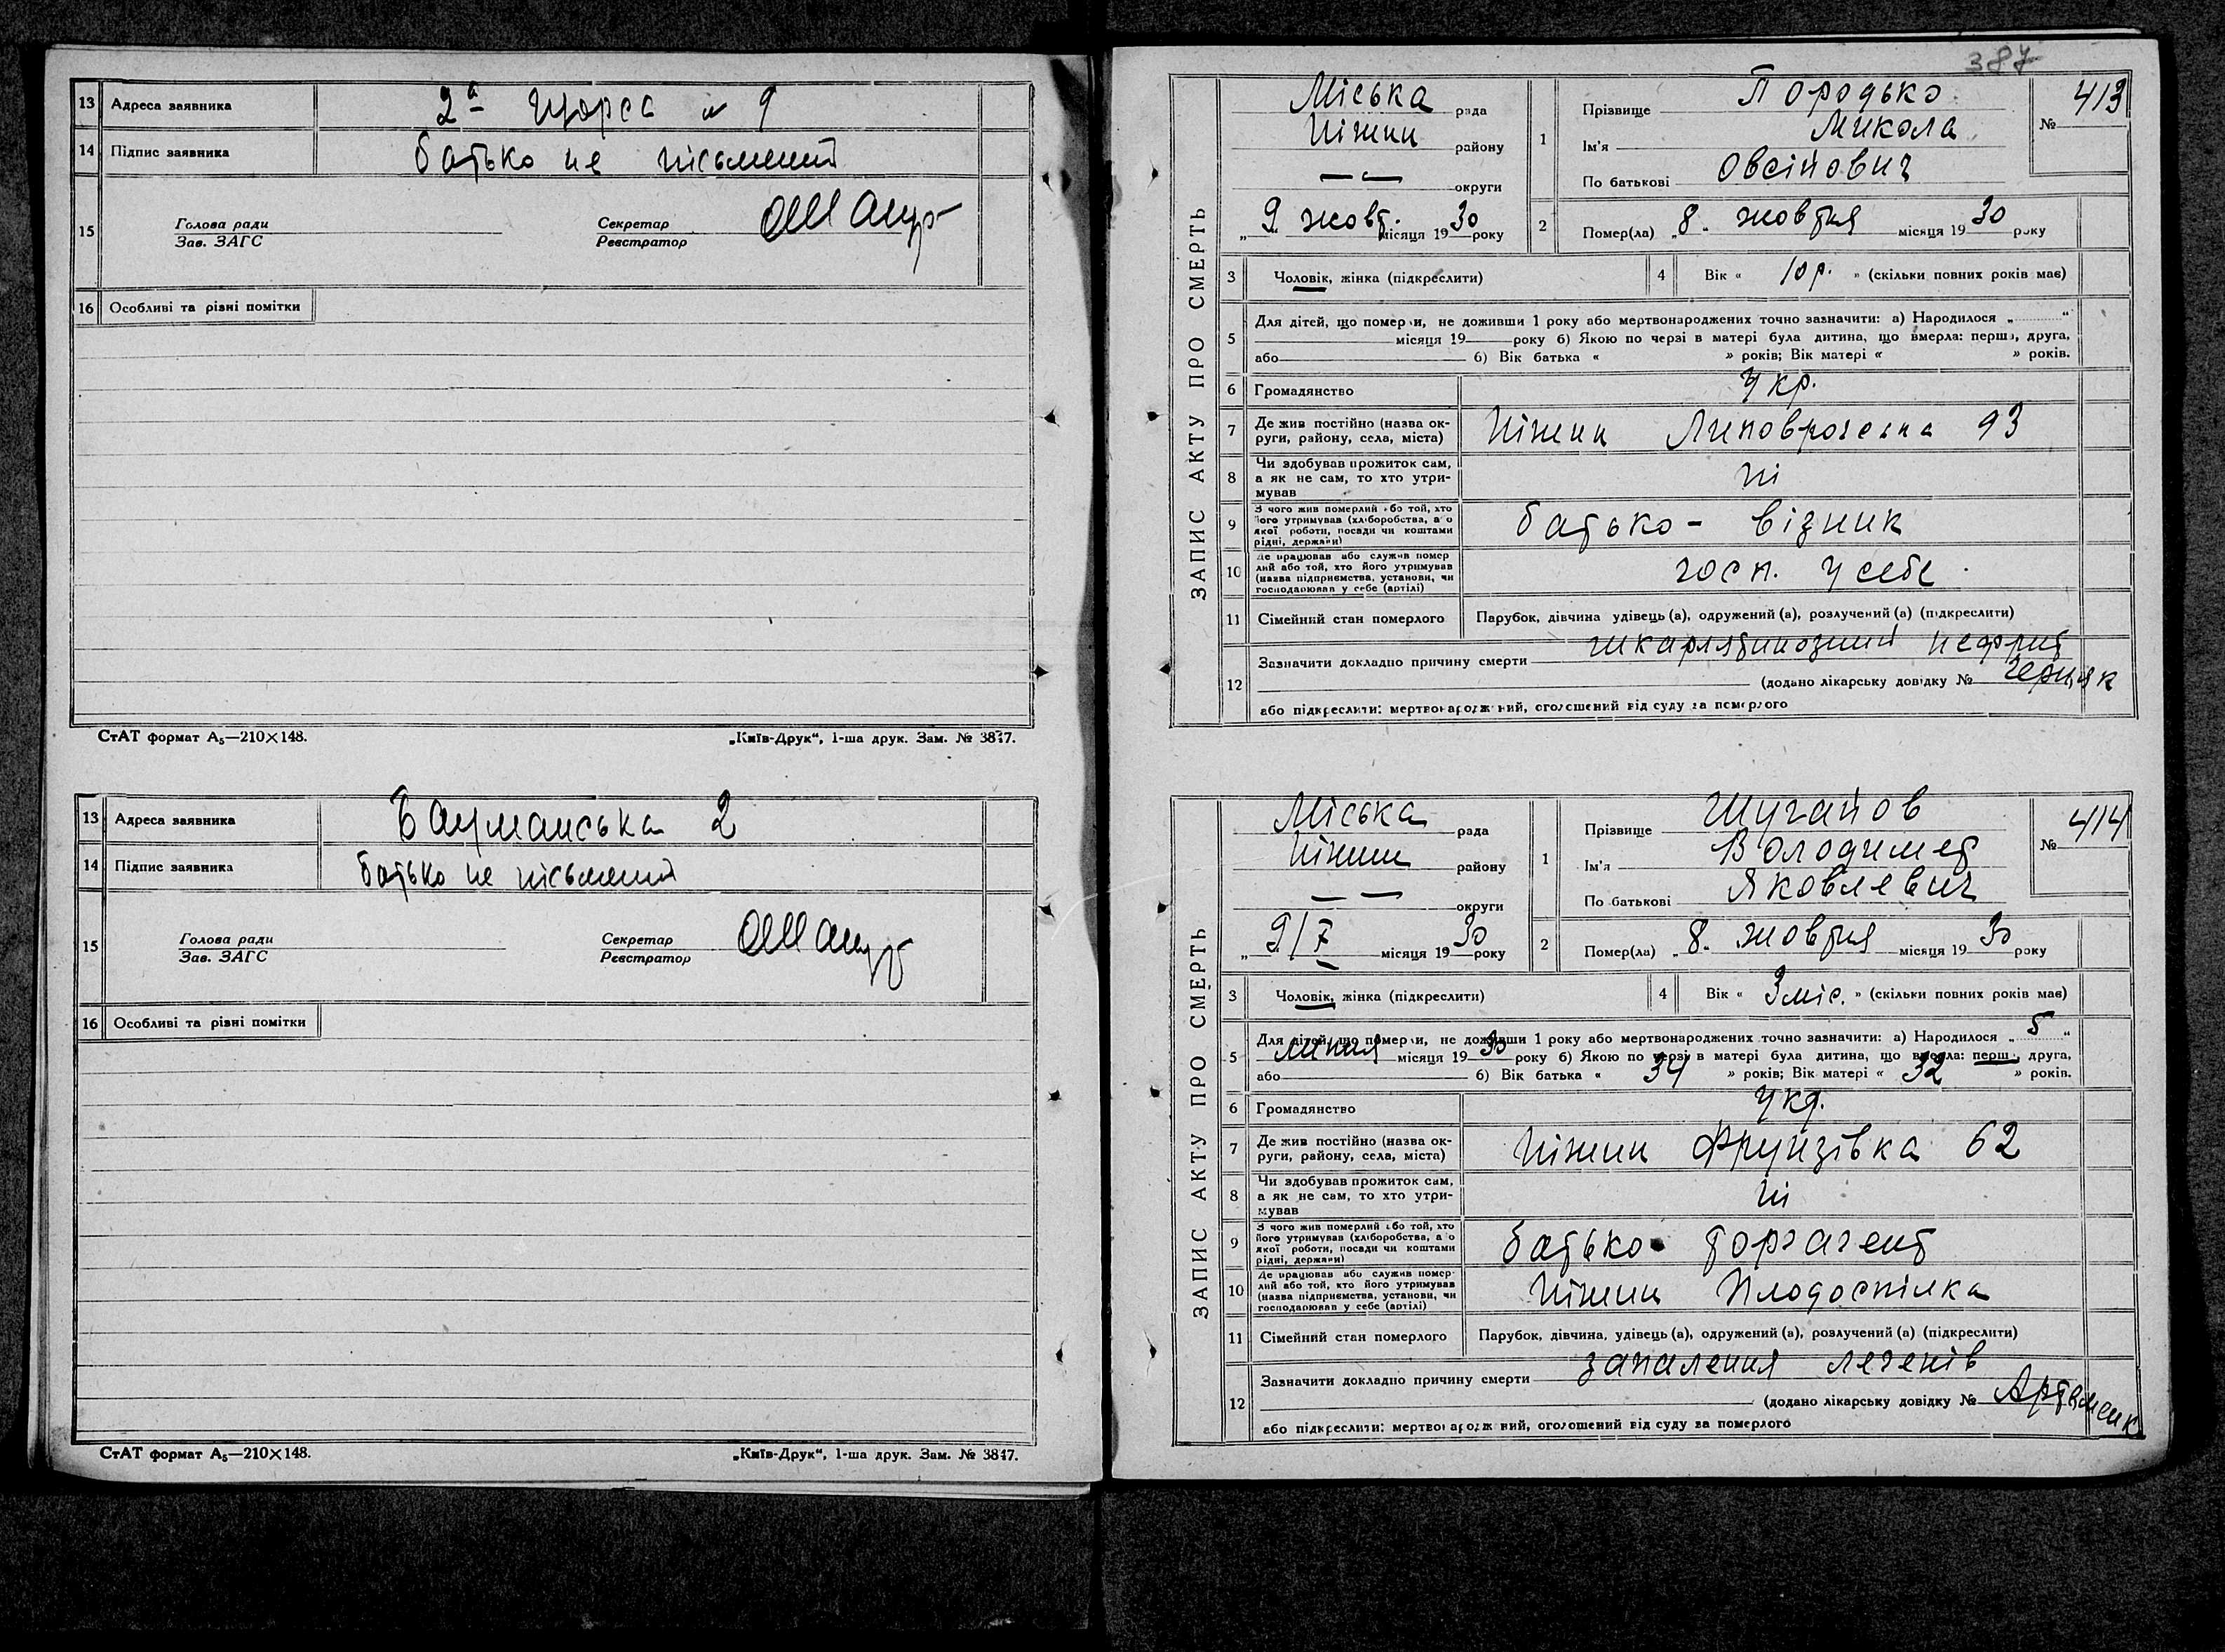 13 Адреса заявника 2а Щорса № 9
14 Підпис заявника батько не пісьмений
15 Голова ради Секретар
Зав. ЗАГС Реєстратор
16 Особливі та різні помітки
СтАТ формат А5—210×148. „Київ-Друк“, 1-ша друк. Зам. № 3847.
13 Адреса заявника Бауманська 2
14 Підпис заявника батько не пісьмений
15 Голова ради Секретар
Зав. ЗАГС Реєстратор
16 Особливі та різні помітки
СтАТ формат А5—210×148. „Київ-Друк“, 1-ша друк. Зам. № 3847.
387
ЗАПИС АКТУ ПРО СМЕРТЬ
Міська рада
Ніжин району
— — округи
„ 9 жовт. місяця 1930 року
1 Прізвище Породько
Ім'я Микола
По батькові Овсійович
№ 413
2 Помер(ла) „8“ жовтня місяця 1930 року
3 Чоловік, жінка (підкреслити)
4 Вік « 10 р. » (скільки повних років має)
5 Для дітей, що померли, не доживши 1 року або мертвонароджених точно зазначити: а) Народилося „ “
місяця 19 року б) Якою по черзі в матері була дитина, що вмерла: перша, друга,
або б) Вік батька « » років; Вік матері « » років.
6 Громадянство Укр.
7 Де жив постійно (назва ок-
руги, району, села, міста) Ніжин Липоврозська 93
8 Чи здобував прожиток сам,
а як не сам, то хто утри-
мував ні
9 З чого жив померлий або той, хто
його утримував (хліборобства, а о
якої роботи, посади чи коштами
рідні, держави) батько - візник
10 Де працював або служив помер
лий або той, хто його утримував
(назва підприємства, установи, чи
господарював у себе (артілі) госп. у себе
11 Сімейний стан померлого Парубок, дівчина удівець (а), одружений (а), розлучений (а) (підкреслити)
12 Зазначити докладно причину смерти шкарлятинозний нефрит
(додано лікарську довідку № Черняк
або підкреслити: мертвонароджений, оголошений від суду за померлого
ЗАПИС АКТУ ПРО СМЕРТЬ
Міська рада
Ніжин району
— — округи
„ 9/X місяця 1930 року
1 Прізвище Шугайов
Ім'я Володимет
По батькові Яковлевич
№ 414
2 Помер(ла) „ 8. жовтня місяця 1930 року
3 Чоловік, жінка (підкреслити)
4 Вік « 3 міс. » (скільки повних років має)
5 Для дітей, що померли, не доживши 1 року або мертвонароджених точно зазначити: а) Народилося „ 5 “
липня місяця 1930 року б) Якою по черзі в матері була дитина, що вмерла: перш , друга,
або б) Вік батька « 34 » років; Вік матері « 32 » років.
6 Громадянство укр.
7 Де жив постійно (назва ок-
руги, району, села, міста) Ніжин Фрунзівка 62
8 Чи здобував прожиток сам,
а як не сам, то хто утри-
мував ні
9 З чого жив померлий або той, хто
його утримував (хліборобства, а о
якої роботи, посади чи коштами
рідні, держави) батько торгагент
10 Де працював або служив помер-
лий або той, хто його утримував
(назва підприємства, установи, чи
господарював у себе (артілі) Ніжин Плодоспілка
11 Сімейний стан померлого Парубок, дівчина, удівець (а), одружений (а), розлучений (а) (підкреслити)
12 Зазначити докладно причину смерти запалення легенів
(додано лікарську довідку № Артеменк
або підкреслити: мертвонароджений, оголошений від суду за померлого